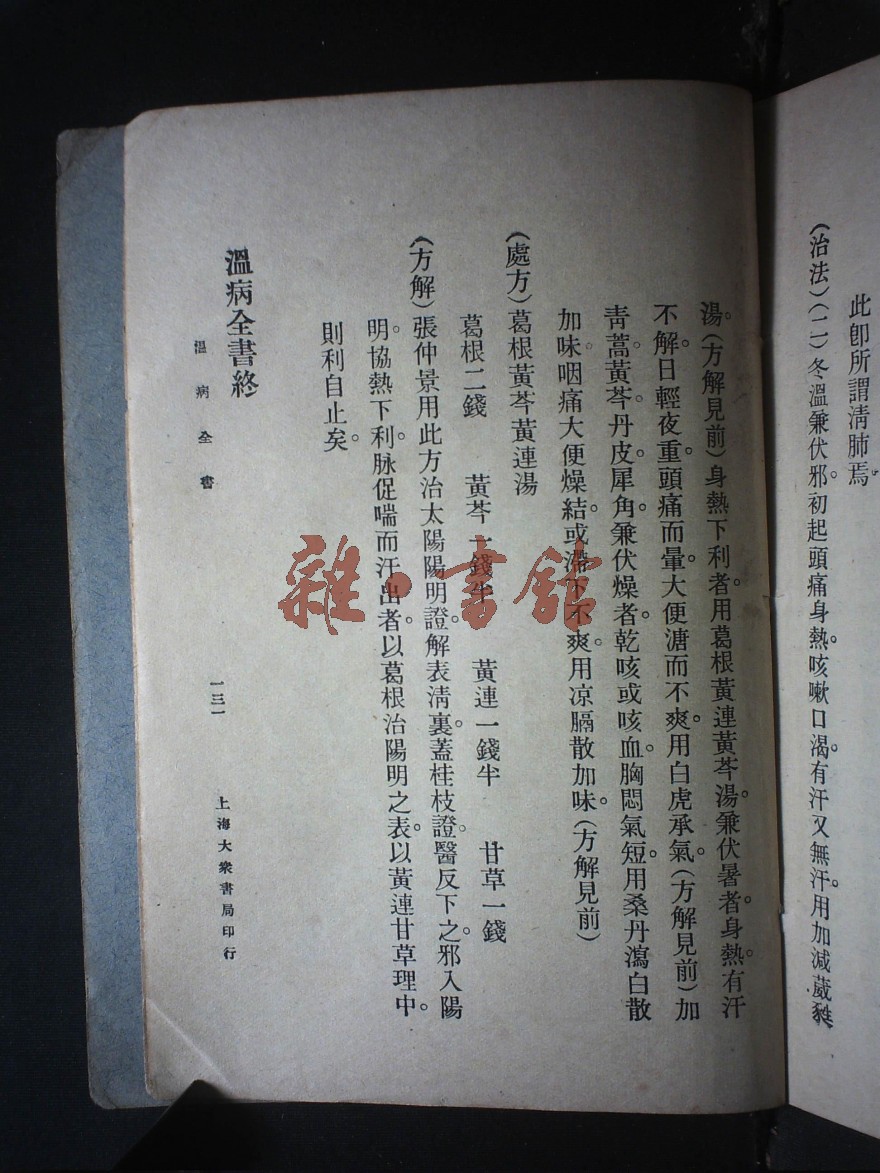 此卽所謂淸肺焉。
(治法)(二)冬溫兼伏邪。初起頭痛身熱。咳嗽口渴。有汗又無汗。用加減葳蕤
湯。(方解見前)身熱下利者。用葛根黃連黃芩湯。兼伏暑者。身熱有汗
不解。日輕夜重。頭痛而暈。大便溏而不爽。用白虎承氣。(方解見前)加
靑蒿。黃芩。丹皮。犀角。兼伏燥者。乾咳或咳血。胸悶氣短。用桑丹瀉白散
加味。咽痛大便燥結。或滯下不爽。用凉膈散加味。(方解見前)
(處方)葛根黃芩黃連湯
葛根二錢 黃芩一錢半 黃連一錢半 甘草一錢
(方解)張仲景用此方治太陽陽明證。解表淸裏。蓋桂枝證。醫反下之。邪入陽
明。協熱下利。脉促喘而汗出者。以葛根治陽明之表。以黃連甘草理中。
則利自止矣。
溫病全書終
溫病全書 一三一 上海大衆書局印行
雜·書館